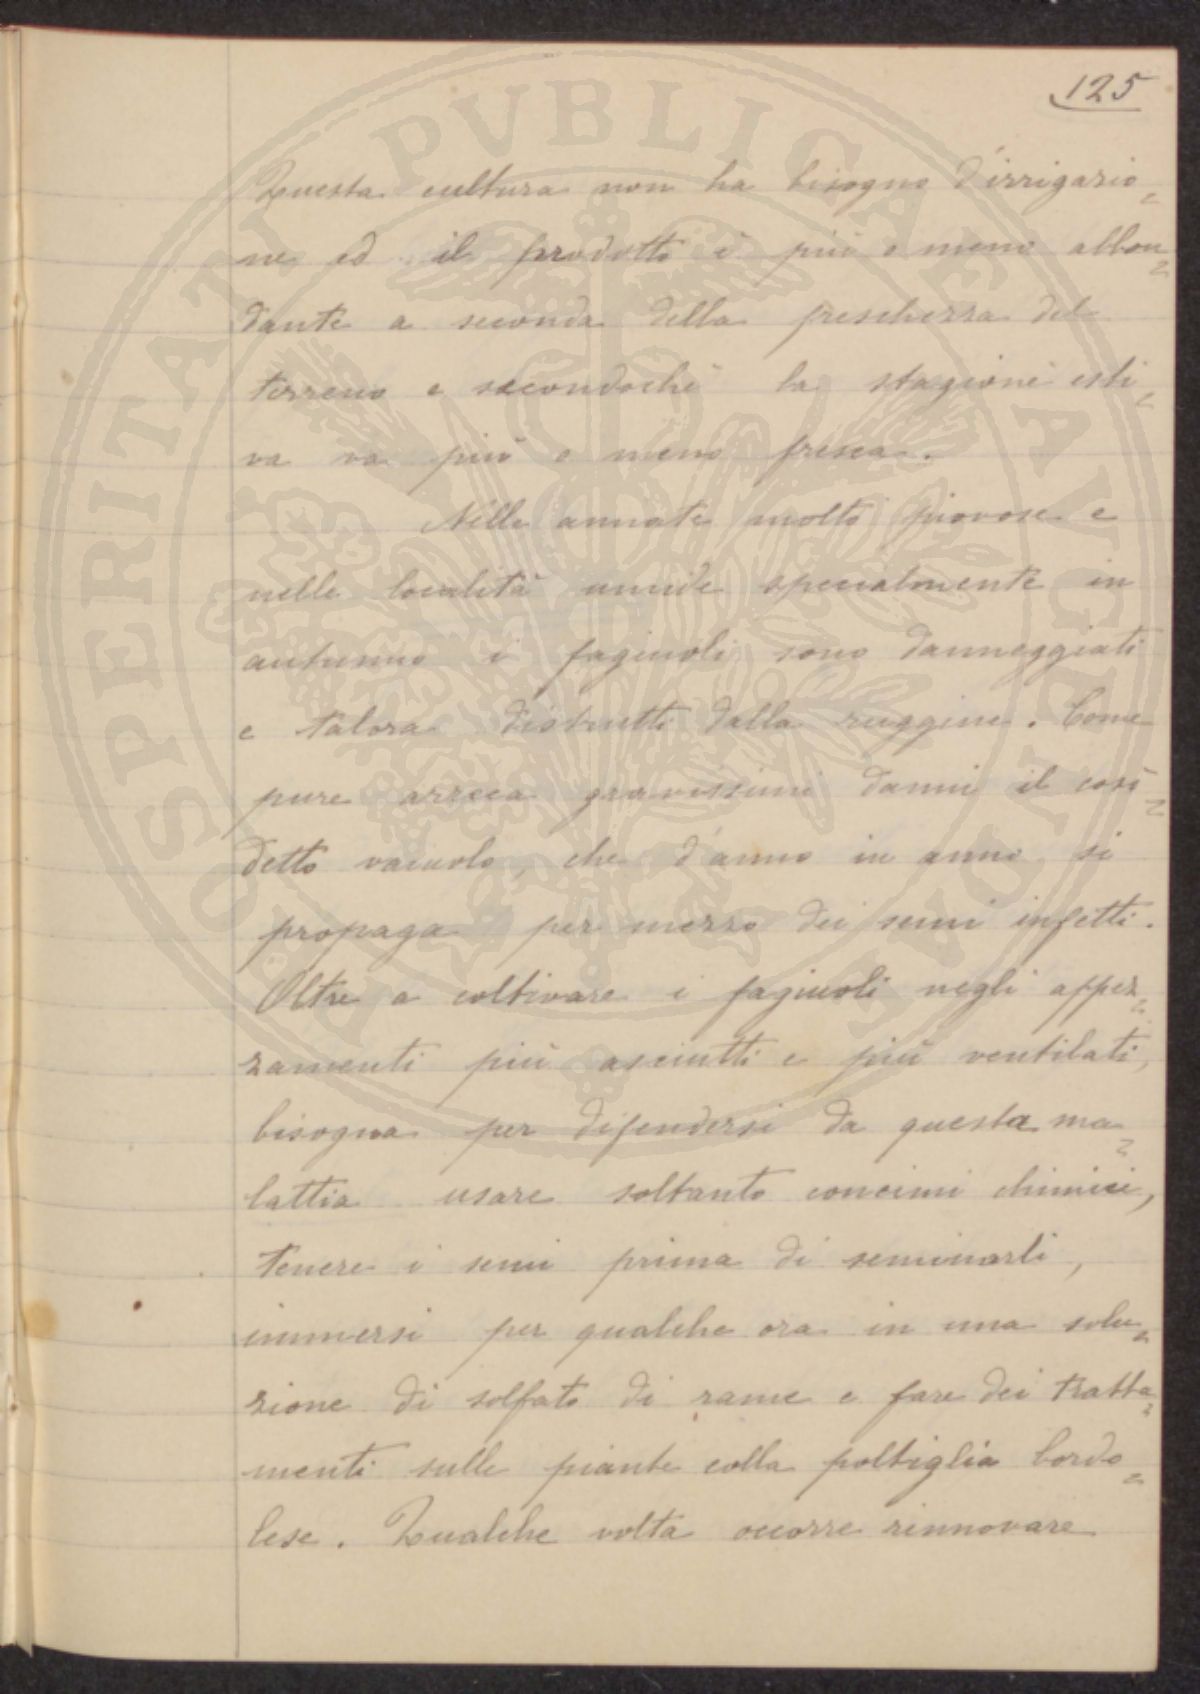 125
Questa cultura non ha bisogno d'irrigazio=
ne ed il prodotto è più o meno abbon=
dante a seconda della freschezza del
terreno e secondochè la stagione esti=
va va più o meno fresca.
Nelle annate molto piovose e
nelle località umide specialmente in
autunno i fagiuoli sono danneggiati
e talora distrutti dalla ruggine. Come
pure arreca gravissimi danni il così=
detto vaiuolo, che d'anno in anno si
propaga per mezzo dei semi infetti.
Oltre a coltivare i fagiuoli negli appez=
zamenti più asciutti e più ventilati,
bisogna per difendersi da questa ma=
lattia usare soltanto concimi chimici,
tenere i semi prima di seminarli,
immersi per qualche ora in una solu=
zione di solfato di rame e fare dei tratta=
menti sulle piante colla poltiglia bordo=
lese. Qualche volta occorre rinnovare
PROSPERITATI PVBLICAE AVGENDAE